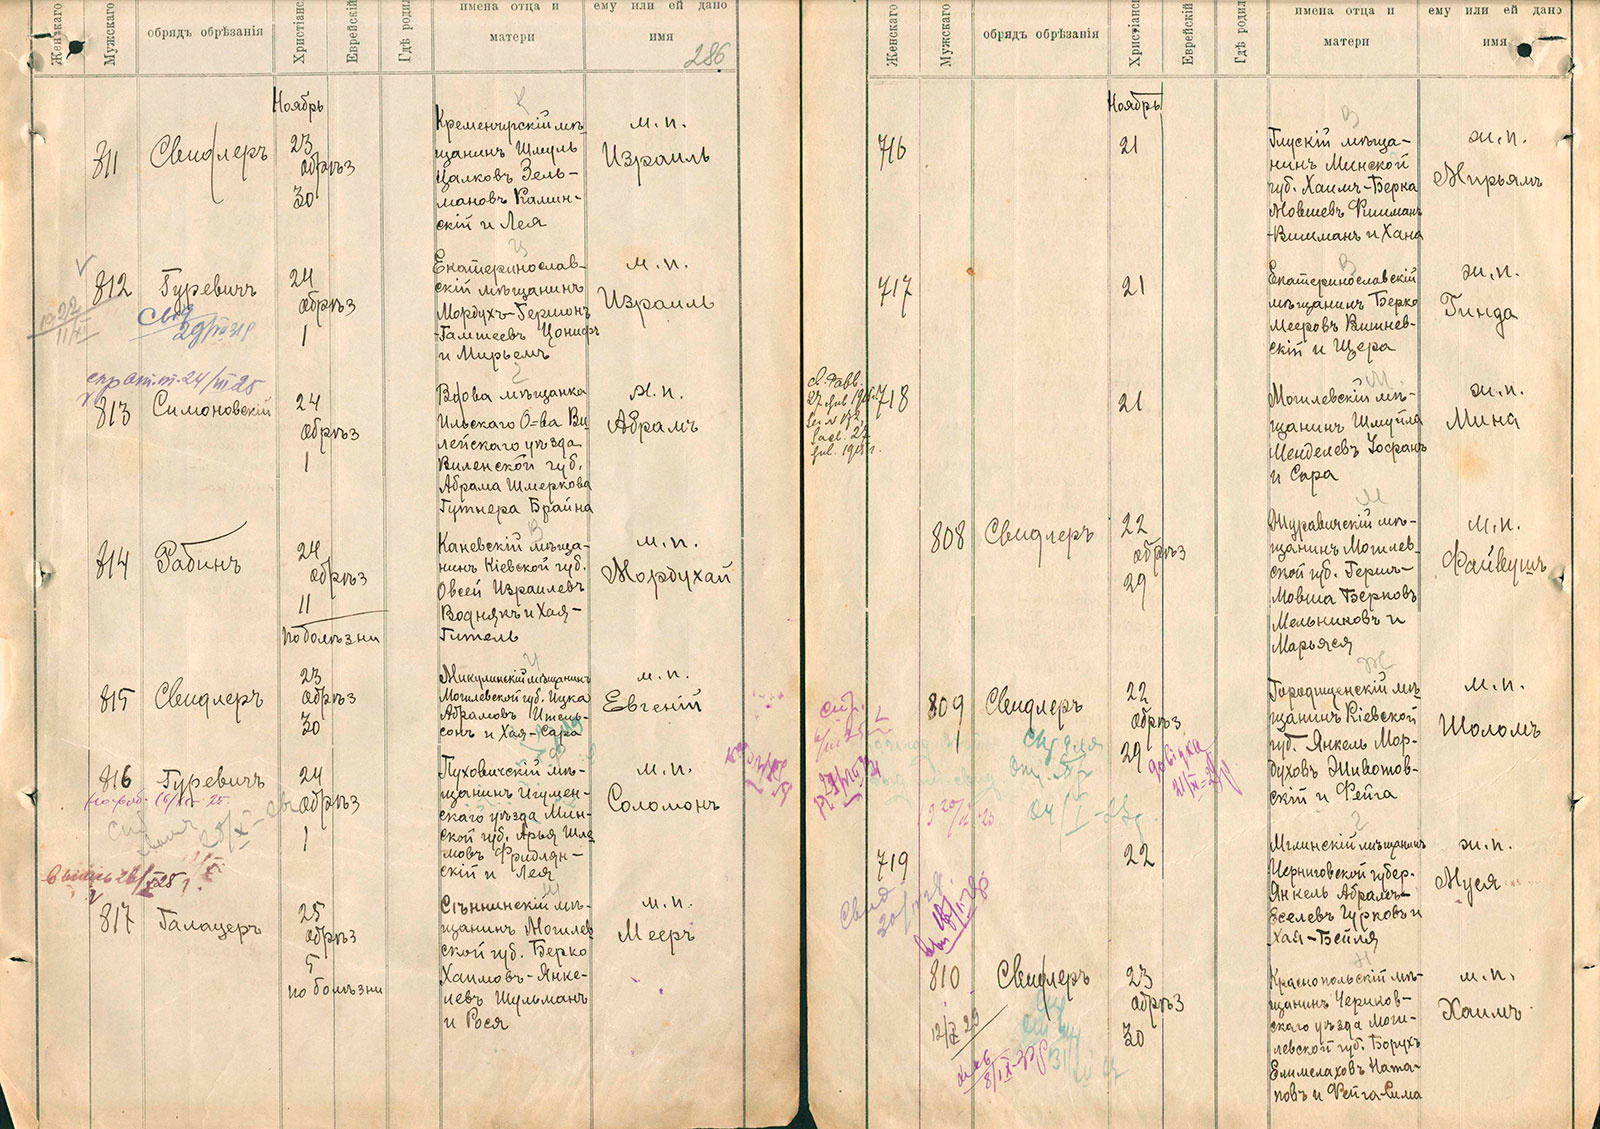 Женскаго
Мужскаго
обрядъ обрѣзанія
Христіанс
Еврейскій
Гдѣ родил
имена отца и
матери
ему или ей дано
имя
286
Ноябрь
811
Свидлеръ
23
обрѣз
30
Кременчугскій мѣ-
щанинъ Шмуль
Цалковъ Зель-
мановъ Камин-
скій и Лея
м. п.
Израиль
812
Гуревичъ
24
обрѣз
1
Екатеринослав-
скій мѣщанинъ
Мордухъ-Гершонъ
и Мирьемъ
м. п.
Израиль
813
Симоновскій
24
обрѣз
1
Вдова мѣщанка
Ильскаго О-ва Ви
лейскаго уѣзда
Виленской губ.
Абрама Шмеркова
Гутнера Брайна
м. п.
Абрамъ
814
Рабинъ
24
обрѣз
11
по болѣзни
Каневскій мѣща-
нинъ Кіевской губ.
Овсей Израилевъ
Воднякъ и Хая-
Гитель
м. п.
Мордухай
815
Свидлеръ
23
обрѣз
30
Микулинскій мѣщанинъ
Могилевской губ. Ицка
Абрамовъ Ицень-
сонъ и Хая-Сара
м. п.
Евгеній
816
Гуревичъ
24
обрѣз
1
Пуховичскій мѣ-
щанинъ Игумен-
скаго уѣзда Мин-
ской губ. Арья Шле
мовъ Фридлян-
скій и Лея
м. п.
Соломонъ
817
Галацеръ
25
обрѣз
5
по болѣзни
Сѣннинскій мѣ-
щанинъ Могилев
ской губ. Берко
Хаимовъ-Янке-
левъ Шульманъ
и Рося
м. п.
Мееръ
Женскаго
Мужскаго
обрядъ обрѣзанія
Христіанс
Еврейскій
Гдѣ родил
имена отца и
матери
ему или ей дано
имя
Ноябрь
716
21
Глускій мѣща-
нинъ Минской
губ. Хаимъ-Берка
Мовшевъ Фишманъ
-Вишманъ и Хана
ж. п.
Мирьямъ
717
21
Екатеринославскій
мѣщанинъ Берко
Мееровъ Вишнев-
скій и Цера
ж. п.
Гинда
718
21
Могилевскій мѣ-
щанинъ Шмуйла
Менделевъ
и Сара
ж. п.
Мина
808
Свидлеръ
22
обрѣз
29
Журавичскій мѣ-
щанинъ Могилев-
ской губ. Герш-
Мовша Берковъ
Мельниковъ и
Марьяся
м. п.
Файвушъ
809
Свидлеръ
22
обрѣз
29
Городищенскій мѣ-
щанинъ Кіевской
губ. Янкель Мор-
духовъ Животов-
скій и Фейга
м. п.
Шоломъ
довідка
719
22
Мглинскій мѣщанинъ
Черниговской губер.
Янкель Абрамъ-
Еселевъ Гурковъ и
Хая-Бейля
ж. п.
Муся
810
Свидлеръ
23
обрѣз
30
Краснопольскій мѣ-
щанинъ Чериков-
скаго уѣзда Моги-
левской губ. Борухъ
Елимелаховъ Ната-
повъ и Фейга-Сима
м. п.
Хаимъ